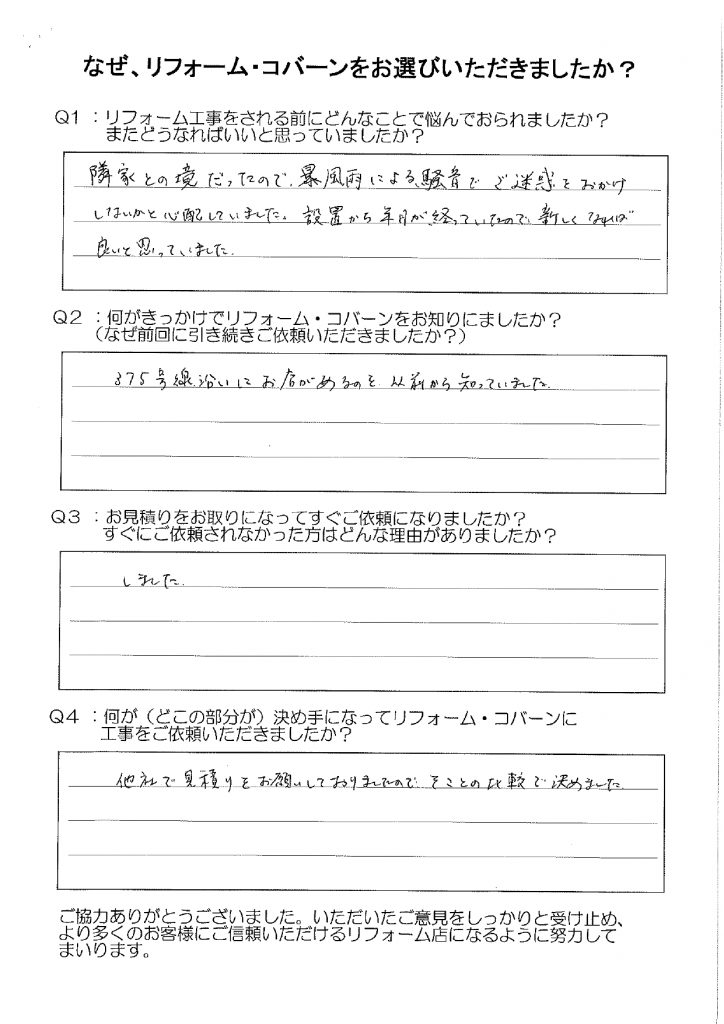 なぜ、リフォーム・コバーンをお選びいただきましたか？
Q1 ：リフォーム工事をされる前にどんなことで悩んでおられましたか？
またどうなればいいと思っていましたか？
隣家との境だったので、暴風雨による騒音でご迷惑をおかけ
しないかと心配していました。設置から年月が経っていたので、新しくなれば
良いと思っていました。
Q2 ：何がきっかけでリフォーム・コバーンをお知りにましたか？
（なぜ前回に引き続きご依頼いただきましたか？）
375号線沿いにお店があるのを以前から知っていました。
Q3 ：お見積りをお取りになってすぐご依頼になりましたか？
すぐにご依頼されなかった方はどんな理由がありましたか？
しました。
Q4 ：何が（どこの部分が）決め手になってリフォーム・コバーンに
工事をご依頼いただきましたか？
他社で見積りをお願いしておりましたので、そことの比較で決めました。
ご協力ありがとうございました。いただいたご意見をしっかりと受け止め、
より多くのお客様にご信頼いただけるリフォーム店になるように努力して
まいります。